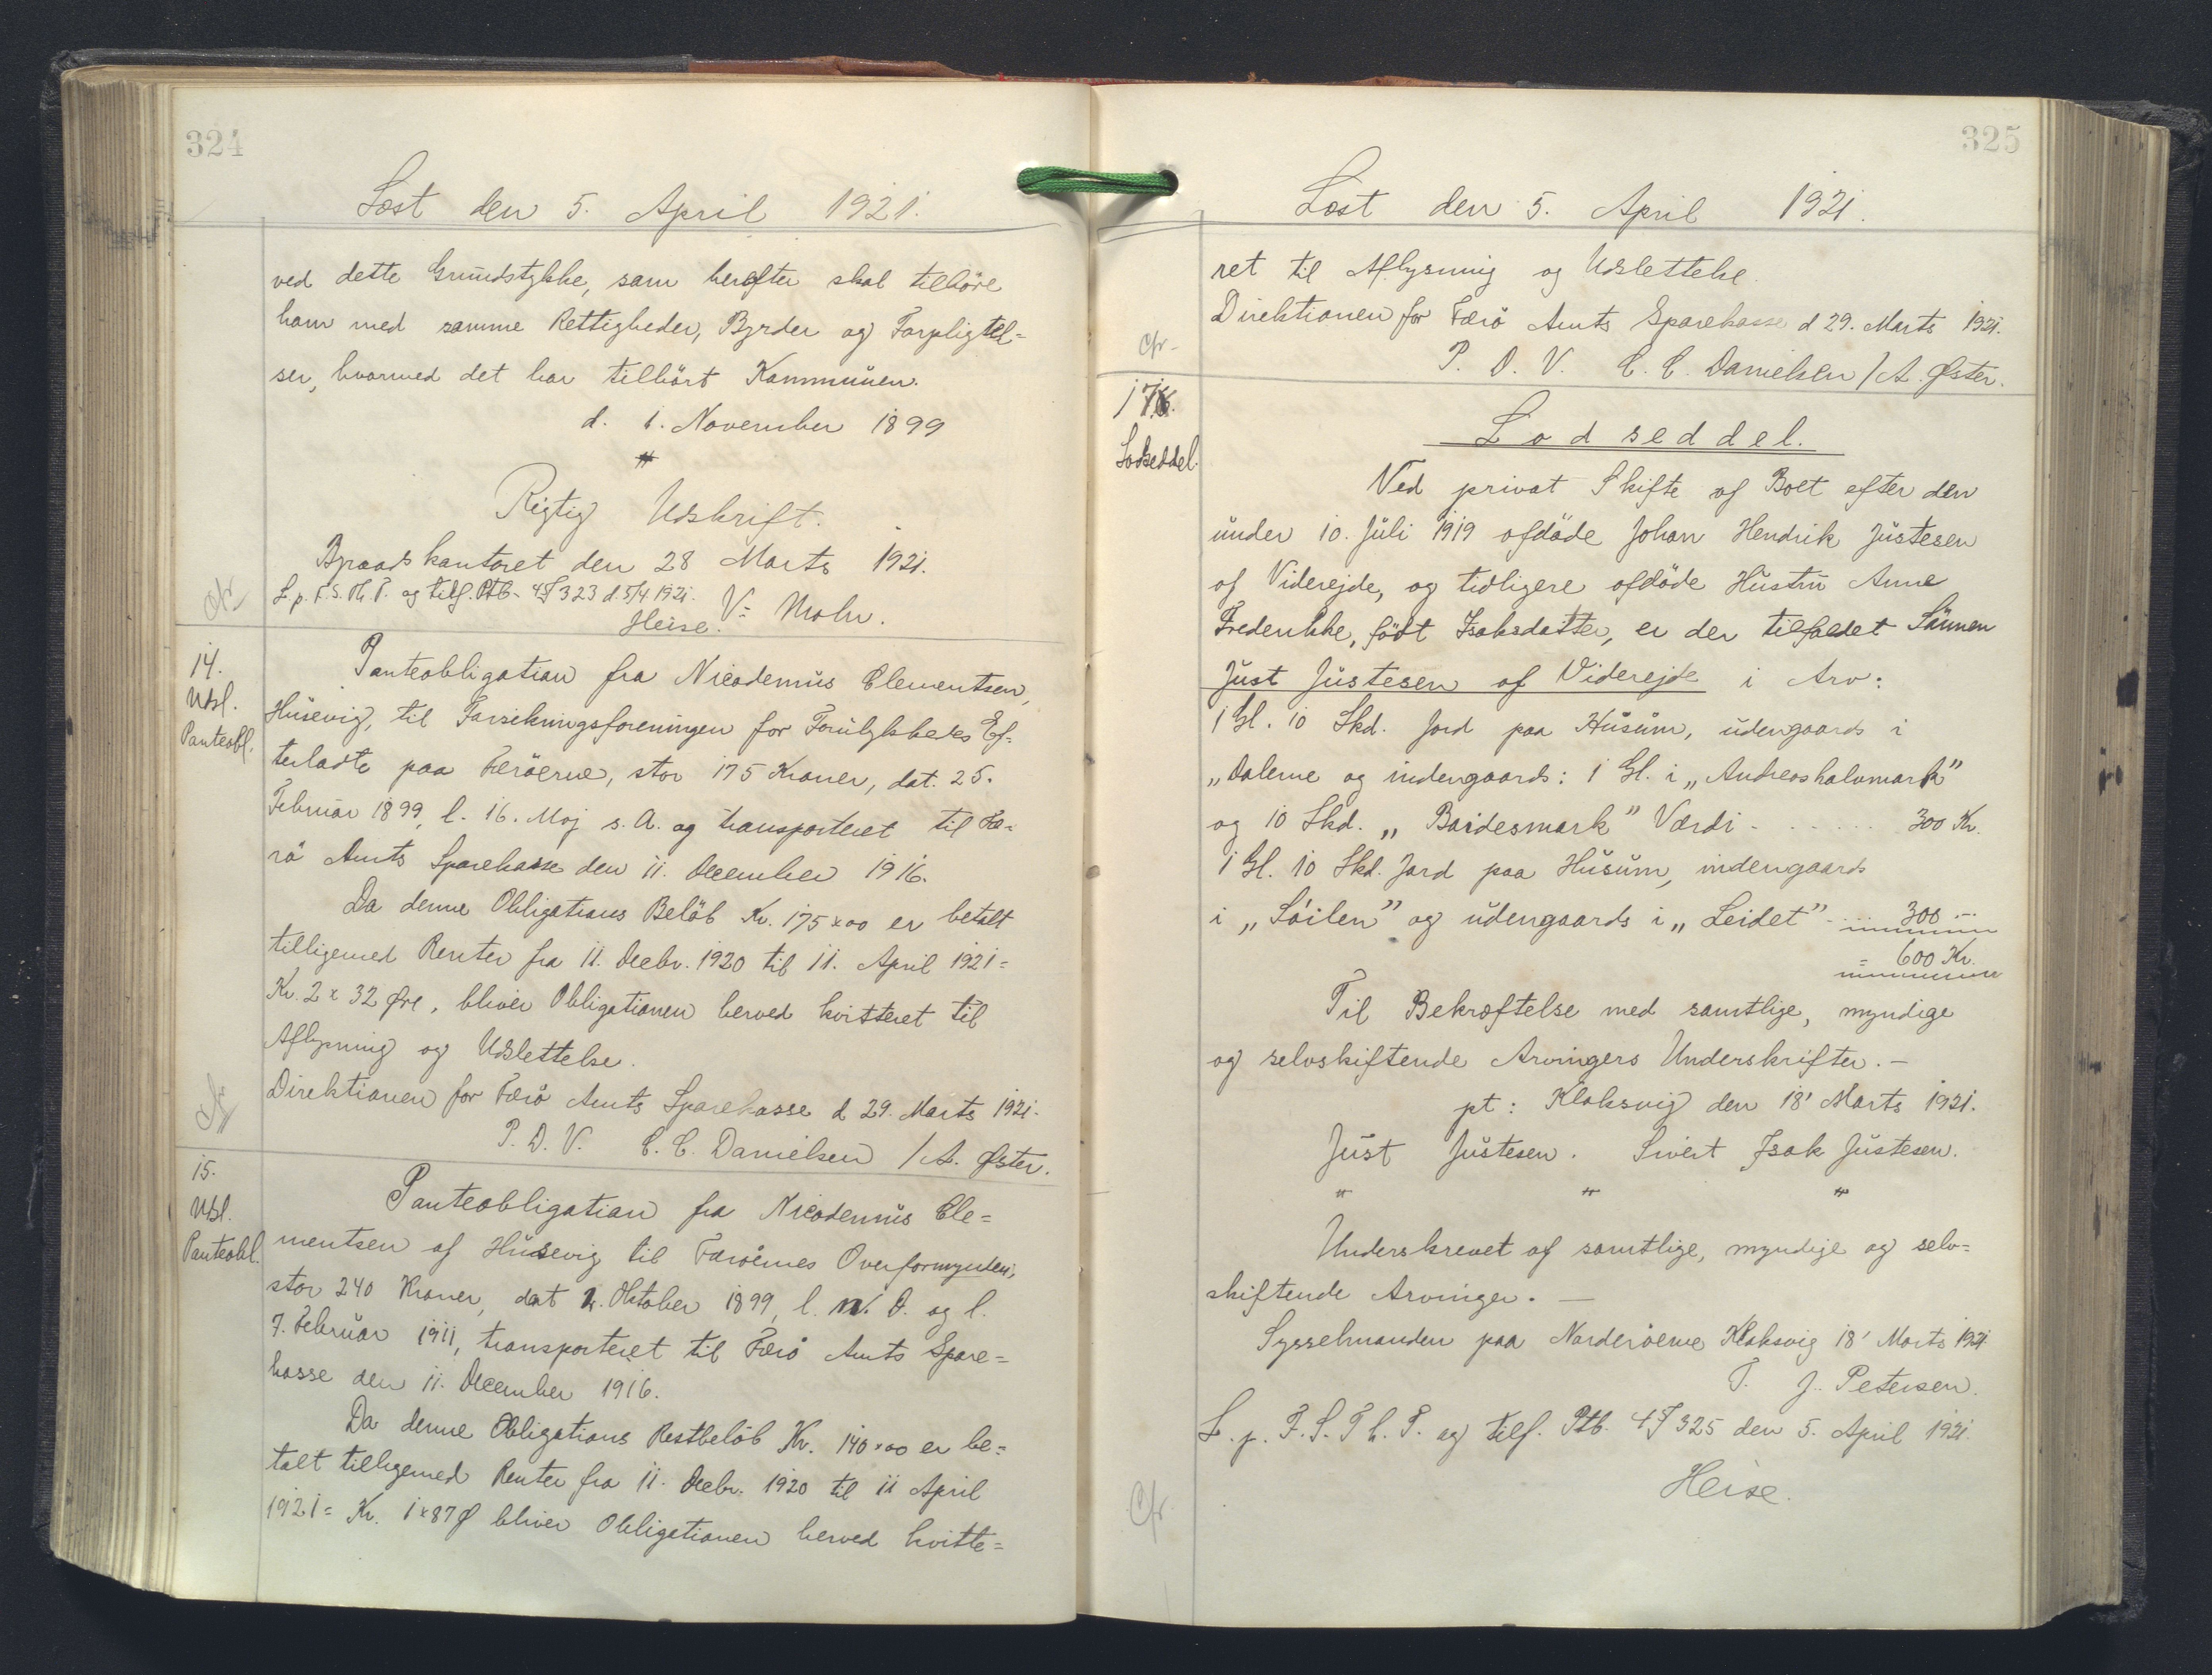 324
Læst den 5. April 1921.
ved dette Grundstykke, som herefter skal tilhöre
ham med samme Rettigheder, Byrder og Forpligtel=
ser, hvormed det har tilhört Kommunen.
d. 1. November 1899
"
Rigtig Udskrift.
Byraadskontoret den 28 Marts 1921.
L. p. F. S. Th. T. og tilf. Ptb. 4J 323 d. 5/4 1921.
V= Mohr.
Heise.
cfr
14.
Udsl.
Panteobl.
Panteobligation fra Nicodemus Clementsen,
Husevig, til Forsikringsforeningen for Forulykkedes Ef=
terladte paa Færöerne, stor 175 Kroner, dat. 25.
Februar 1899, l. 16. Maj s. A. og transporteret til Fæ=
rö Amts Sparekasse den 11. December 1916.
Da denne Obligations Belöb Kr. 175 x 00 er betalt
tilligemed Renter fra 11. Decbr. 1920 til 11. April 1921 =
Kr. 2 x 32 Øre, bliver Obligationen herved kvitteret til
Aflysning og Udslettelse.
Direktionen for Færö Amts Sparekasse d 29. Marts 1921.
P. D. V. C. C. Danielsen / A. Øster.
cfr
15.
Udsl.
Panteobl.
Panteobligation fra Nicodemus Cle=
mentsen af Husevig til Færöernes Overformynderi,
stor 240 Kroner, dat 2. Oktober 1899, l. N. D. og l.
7. Februar 1911, transporteret til Færö Amts Spare=
kasse den 11. December 1916.
Da denne Obligations Restbelöb Kr. 140 x 00 er be=
talt tilligemed Renter fra 11. Decbr. 1920 til 11 April
1921 = Kr. 1 x 87 Ø bliver Obligationen herved kvitte=
325
Læst den 5. April 1921.
ret til Aflysning og Udslettelse.
Direktionen for Færö Amts Sparekasse d 29. Marts 1921.
P. D. V. C. C. Danielsen / A. Øster.
cfr
16.
Lodseddel.
Lodseddel.
Ved privat Skifte af Boet efter den
under 10. Juli 1919 afdöde Johan Hendrik Justesen
af Viderejde, og tidligere afdöde Hustru Anne
Frederikke, födt Isaksdatter, er der tilfaldet Sönnen
Just Justesen af Viderejde i Arv:
1 Gl. 10 Skd. Jord paa Husum, udengaards i
„Dalerne og indengaards: 1 Gl. i „Andreashalvmark"
og 10 Skd. „Bardesmark" Værdi - . . . . . . 300 Kr.
1 Gl. 10 Skd. Jord paa Husum, indengaards
i „Söilen" og udengaards i „Leidet" . . . . 300 -
= 600 Kr.
Til Bekræftelse med samtlige, myndige
og selvskiftende Arvingers Underskrifter. -
pt: Klaksvig den 18' Marts 1921.
Just Justesen. Sivert Isak Justesen.
" " "
Underskrevet af samtlige, myndige og selv=
skiftende Arvinger. -
Sysselmanden paa Norderöerne Klaksvig 18' Marts 1921
T. J. Petersen.
L. p. F. S. T h. T. og tilf. Ptb. 4J 325 den 5. April 1921.
Heise.
Cfr.